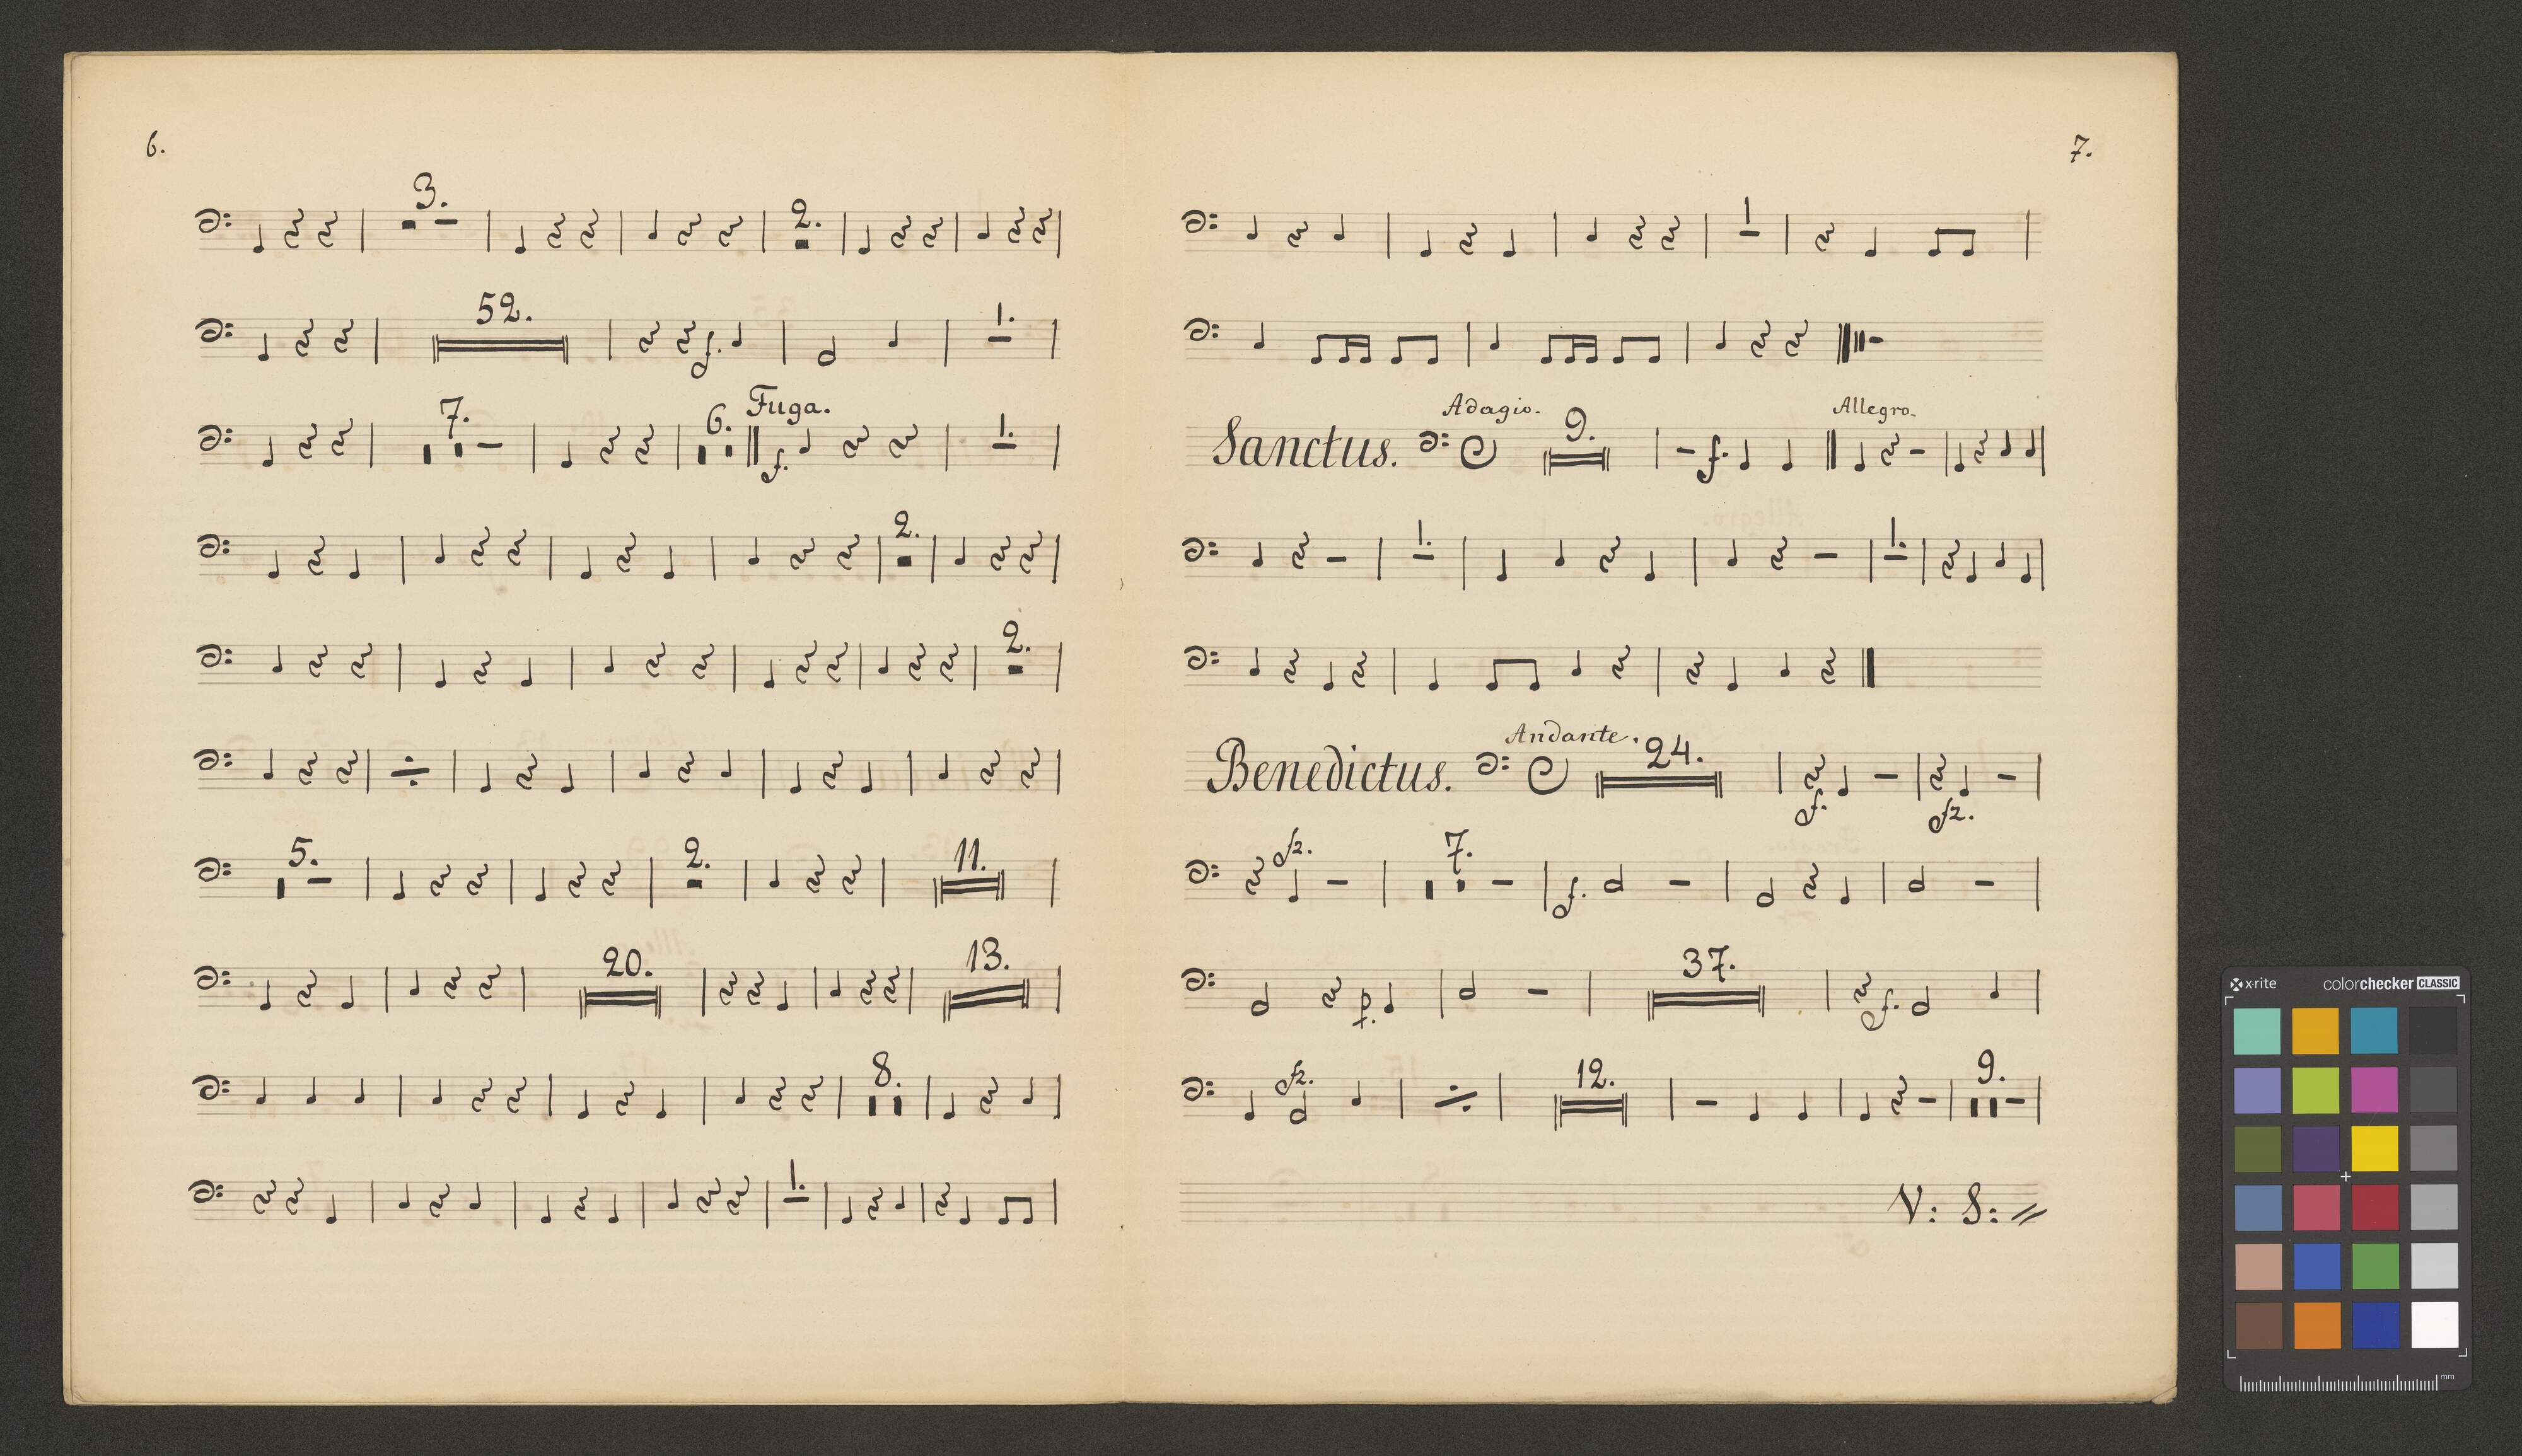 6.
3. 2.
52. 1.
7. 6. Fuga. f. 1.
2.
2.
5. 2. 11.
20. 13.
8.
1.
7.
1
Sanctus. Adagio. 9. f. Allegro.
1. 1.
Benedictus. Andante. 24. f. fz.
fz. 7. f.
p. 37. f.
fz. 12. 9.
V: S:
x-rite colorchecker CLASSIC
mm